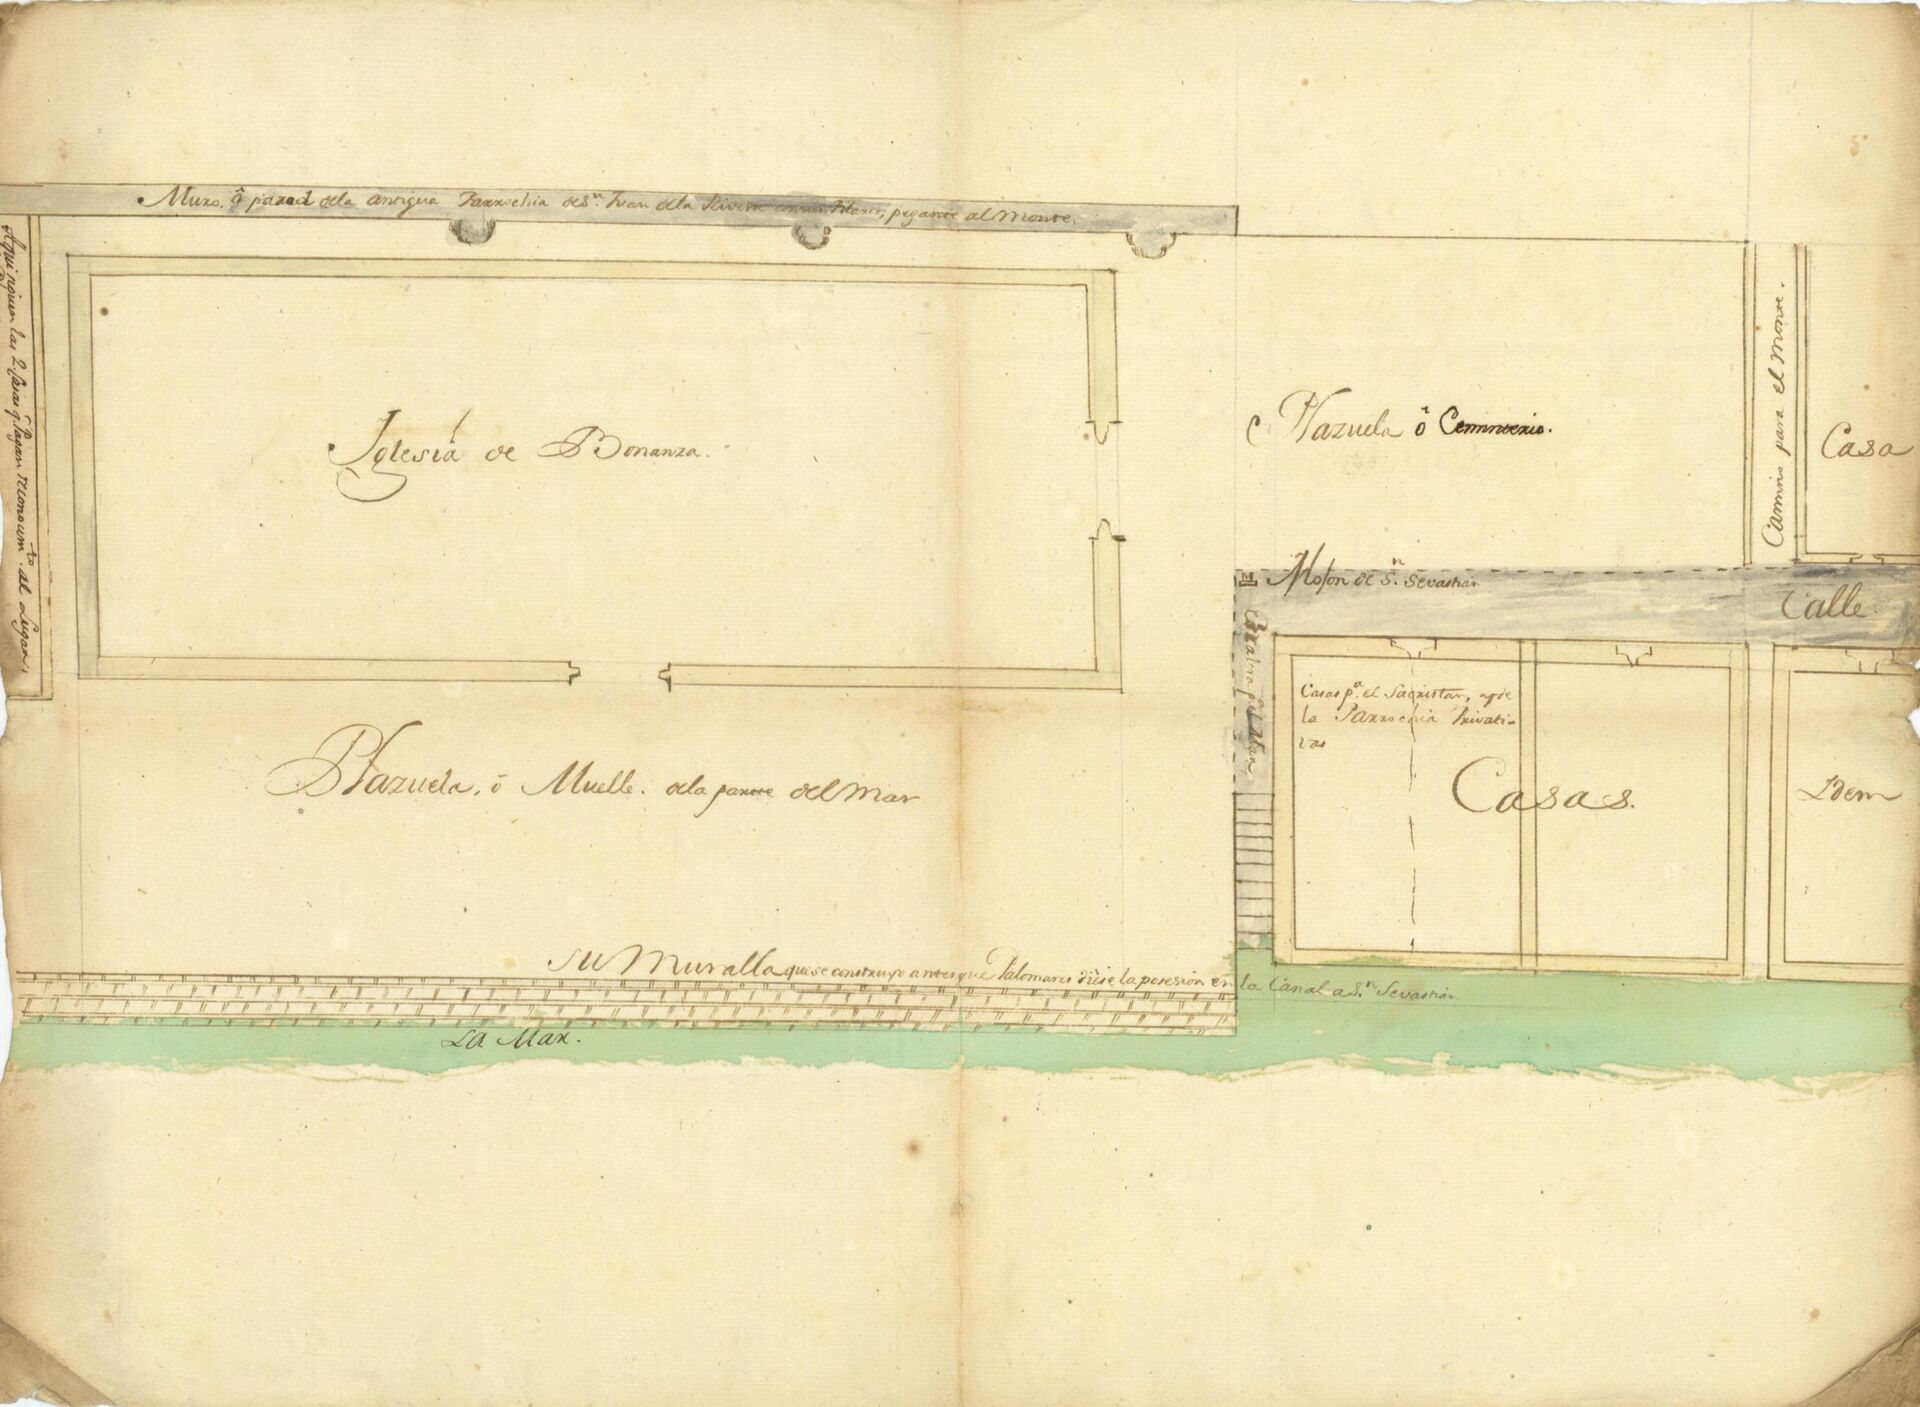 Muro, ô pared dela antigua Parrochia de Sn. Juan dela Rivera con sus Pilares, pegante al Monte.
Aqui siguen las 2 Casas q. pagan reconocimto. al Lugar.
Iglesia de Bonanza.
Plazuela ô Cemmterio.
Camino para el Monte.
Casa
Mojon de Sn. Sevastian
M
Calle.
Escalera pa. el Mar
Casas pa. el Sacristan, de
la Parrochia Privati-
vas
Casas.
Idem
Plazuela, ô Muelle. dela parte del Mar
Su Muralla que se construyo antes que Palomares diése la posesion en la Canal a Sn. Sevastian
La Mar.